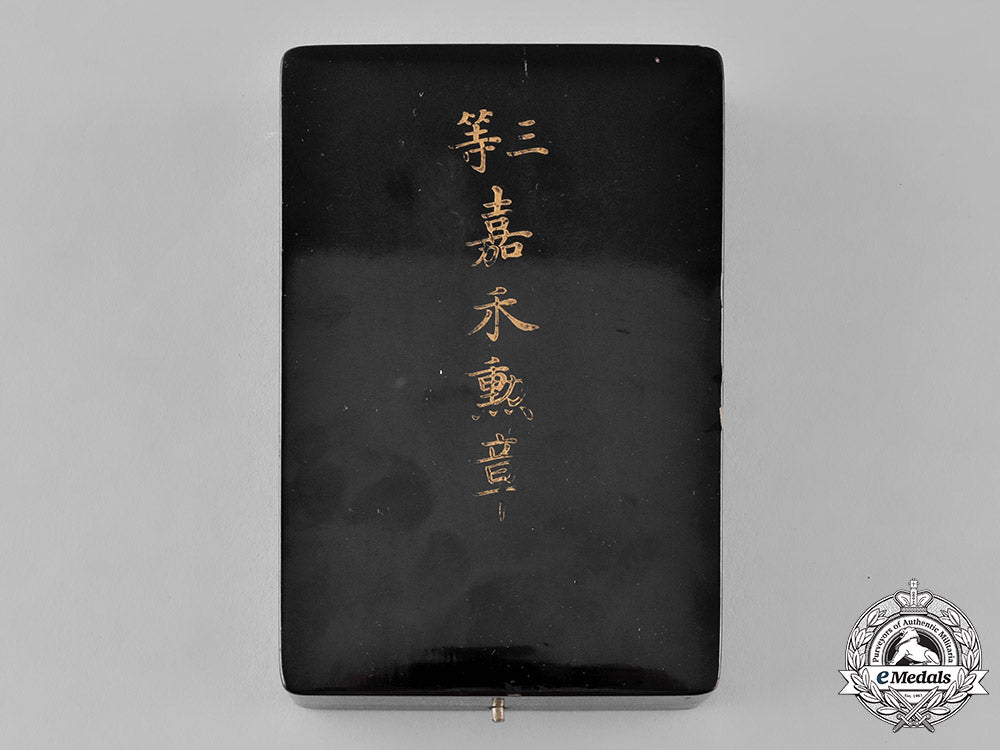 三等
嘉禾勲章
Purveyors of Authentic Militaria
eMedals
Est. 1967